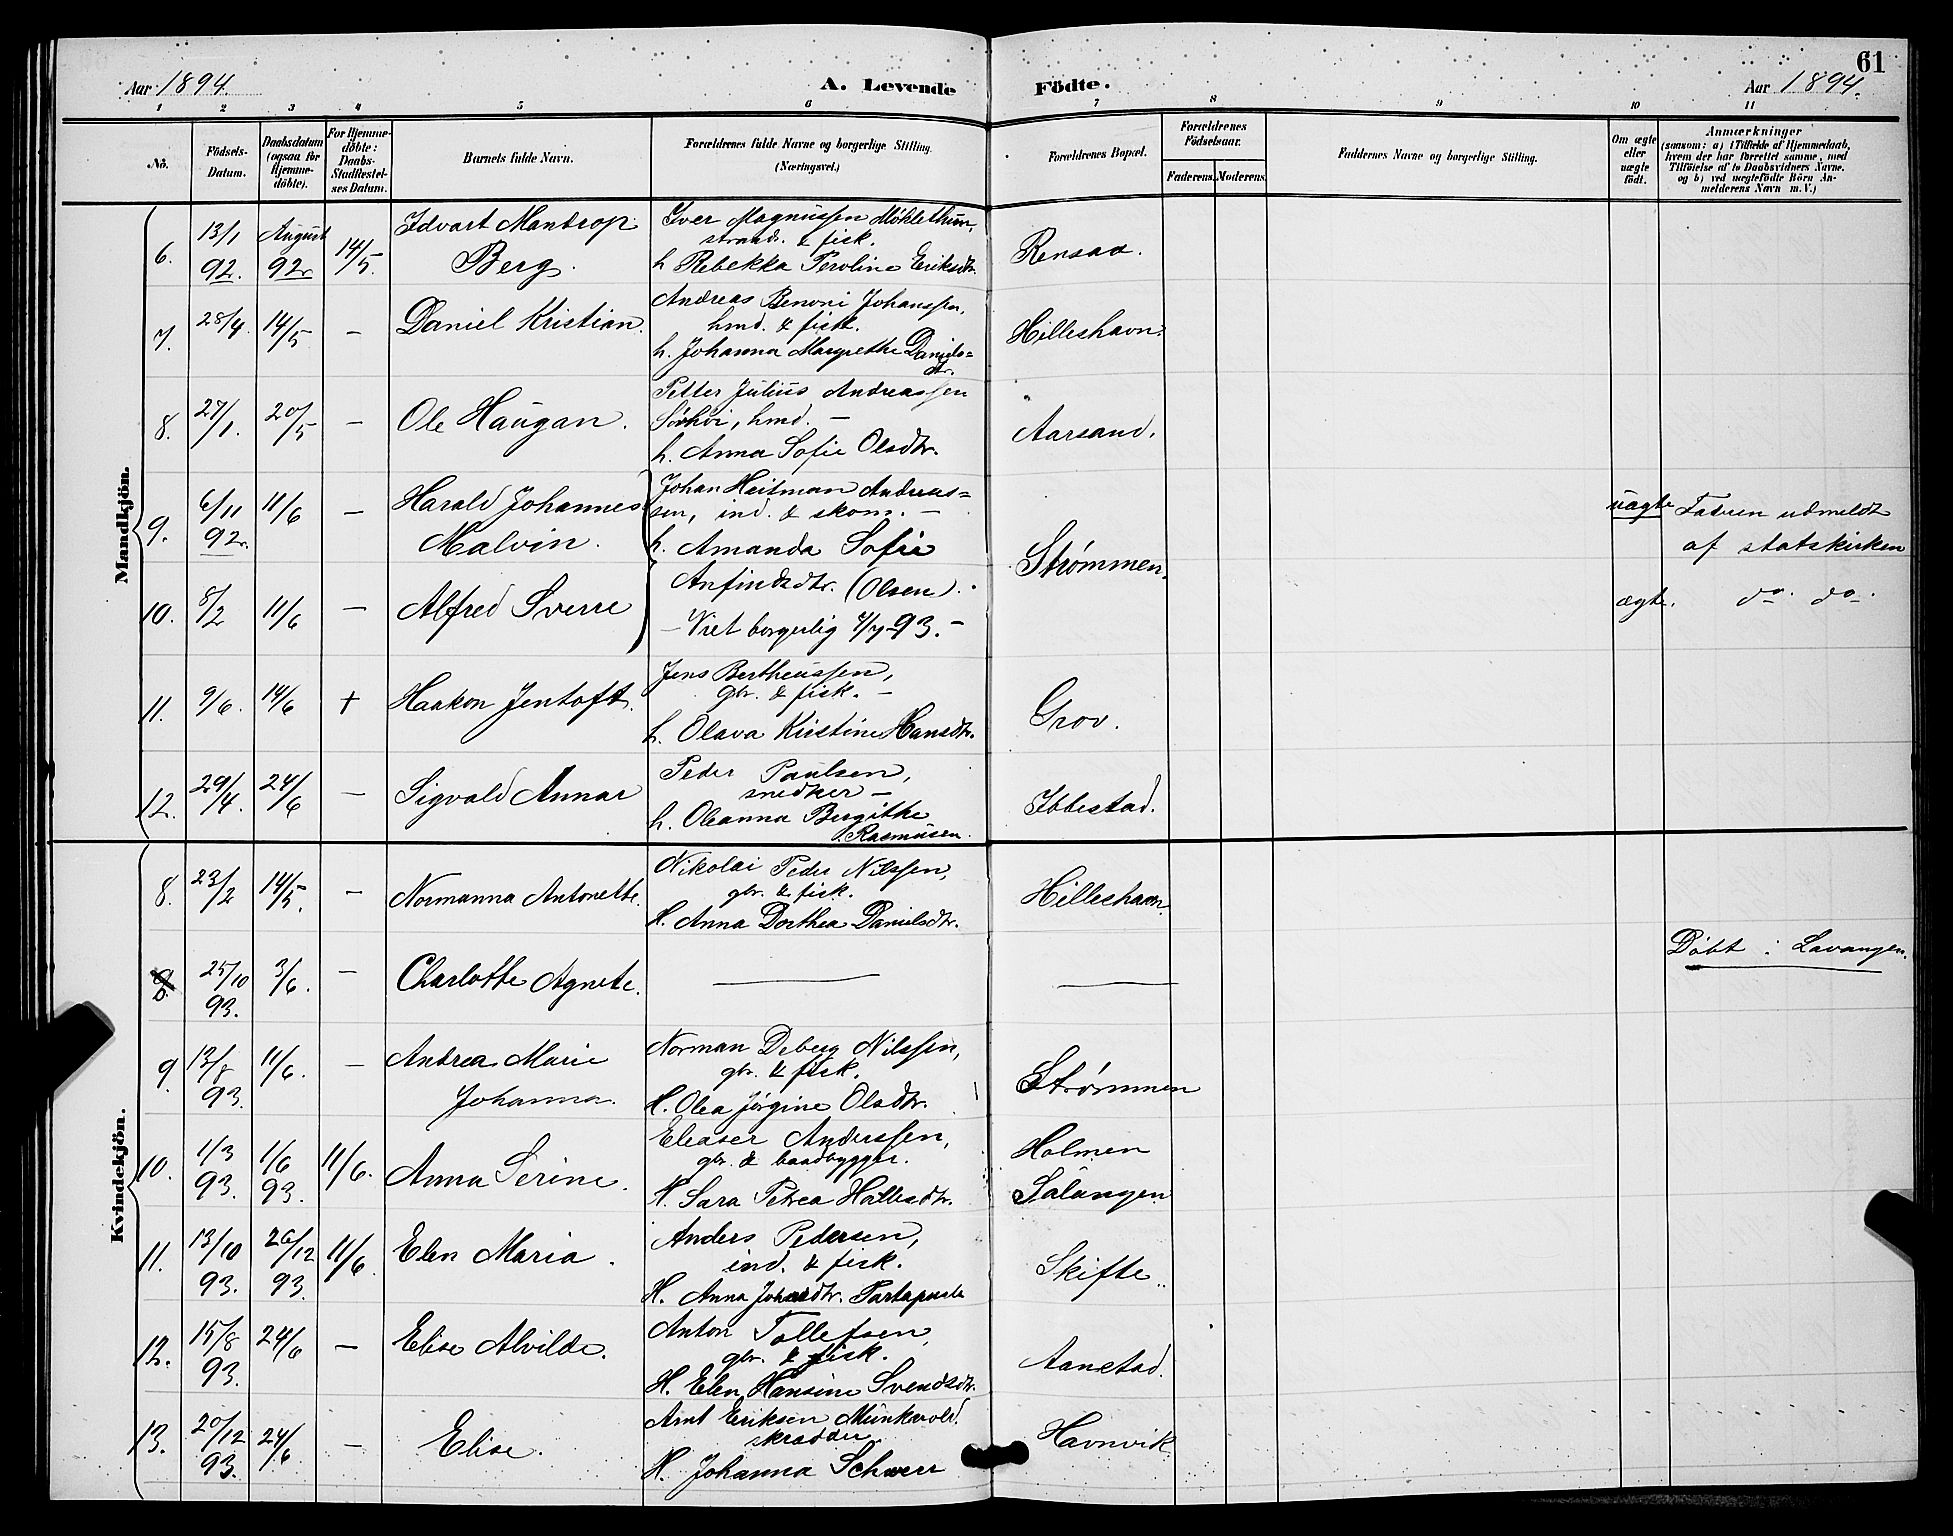 61
Aar 1894. A. Levende Födte. Aar 1894.
1 2 3 4 5 6 7 8 9 10 11
No. Födsels-Datum. Daabsdatum (ogsaa for Hjemme-döbte). For Hjemme-döbte: Daabs-Stadfæstel-ses Datum. Barnets fulde Navn. Forældrenes fulde Navne og borgerlige Stilling. (Næringsvei.) Forældrenes Bopæl. Forældrenes Födselsaar. Faderens. Moderens. Faddernes Navne og borgerlige Stilling. Om ægte eller uægte födt. Anmærkninger (saasom: a) i Tilfælde af Hjemmedaab, hvem der har forrettet samme, med Tilföielse af to Daabsvidners Navne, og b) ved uægtefödte Börn An-melderens Navn m. V.)
Mandkjön.
6. 13/1 92. August 92. 14/5. Edvart Mandrop Berg. Iver Magnussen
strand. & fisk.
h Rebekka Peroline Eriksdtr.
7. 28/4. 14/5 — Daniel Kristian. Andreas Benoni Johanssen,
hmd. & fisk.
h. Johanna Margrethe Daniels=
dtr. Hilleshavn.
8. 27/1. 20/5 — Ole Haugan. Petter Julius Andreassen
hmd. —
h. Anna Sofie Olsdtr. Aarsand.
9. 6/11 92. 11/6 — Harald Johannes
Malvin. Johan Heitman Andreas=
sen, ind. & skom. —
h. Amanda Sofie Strømmen. uægte Faderen udmeldt
af statskirken
10. 8/2 11/6 — Alfred Sverre Anfindsdtr. (Olsen).
— Viet borgerlig 4/7 93. — ægte. do. do.
11. 9/6. 14/6 + Haakon Jentoft. Jens Bertheussen,
gbr. & fisk. —
h. Olava Kristine Hansdtr. Grov.
12. 29/4. 24/6 — Sigvald Annar Peder Paulsen,
snedker —
h. Oleanna Bergithe
Rasmusen. Ibbestad.
Kvindekjön.
8. 23/2 14/5. — Normanna Antonette. Nikolai Peder Nilssen,
gbr. & fisk.
H. Anna Dorthea Danielsdtr. Hilleshavn.
25/10 93. 3/6. — Charlotte Agnete. — — Døbt i Lavangen.
9. 13/8 93. 11/6. — Andrea Marie
Johanna. Norman Deberg Nilssen,
gbr. & fisk.
H. Olea Jørgine Olsdtr. Strømmen
10. 1/3 93. 1/6 93. 11/6. Anna Serine. Eleaser Anderssen,
gbr. & baadbygger.
H. Sara Petrea Hallesdtr. Holmen
Salangen
11. 13/10 93. 20/12 93. 11/6. Elen Maria. Anders Pedersen,
ind. & fisk.
H. Anna Skifte.
12. 15/8 93. 24/6 — Elise Alvilde. Anton Tollefsen,
gbr. & fisk.
H. Elen Hansine Svendsdtr. Aanstad.
13. 20/12 93. 24/6 — Elise. Arnt Eriksen Munkvold
skrædder.
H. Johanna Schwerr Havnvik